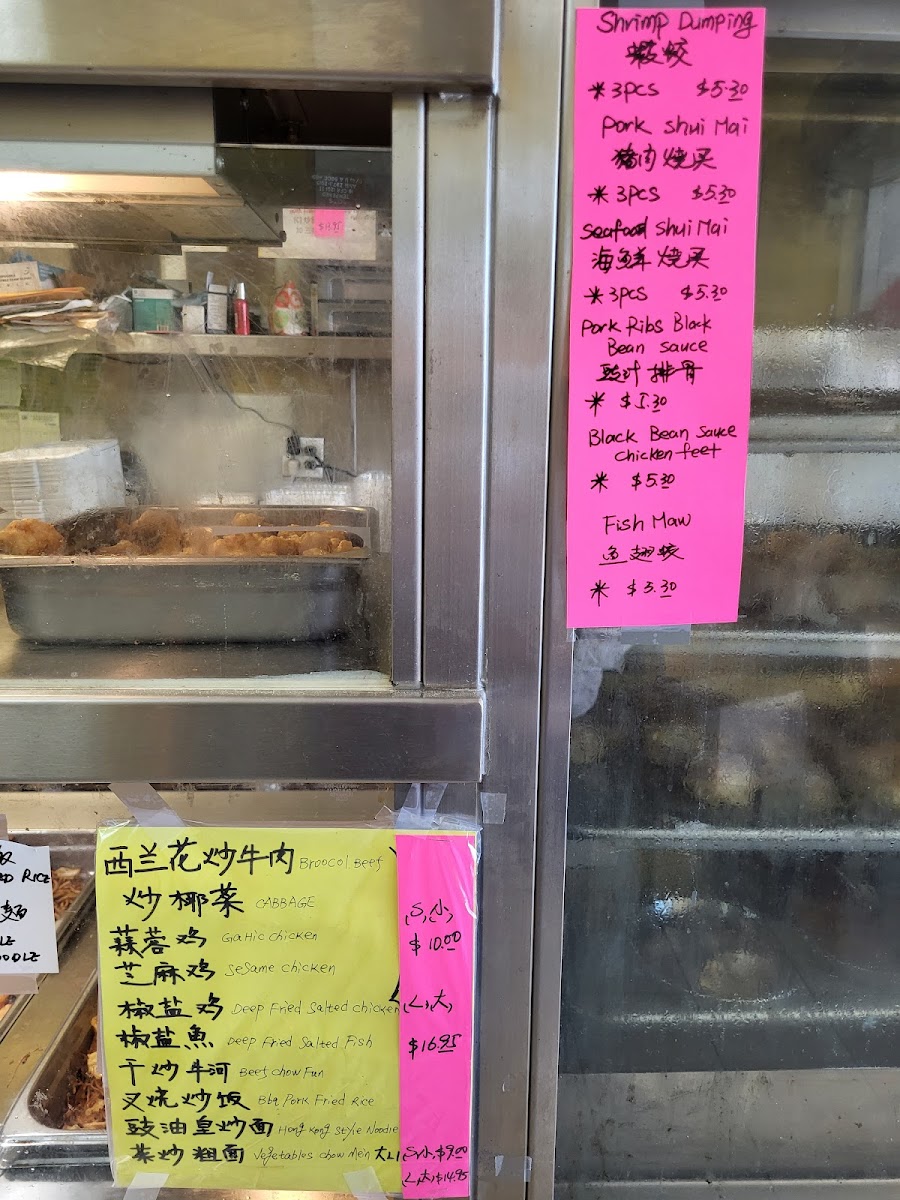 Shrimp Dumping
蝦餃
*3pcs $5.30
Pork Shui Mai
猪肉烧买
*3pcs $5.30
Seafood Shui Mai
海鲜烧买
*3pcs $5.30
Pork Ribs Black
Bean sauce
豉汁排骨
* $5.30
Black Bean Sauce
chicken feet
* $5.30
Fish Maw
鱼翅餃
* $5.30
$11.95
西兰花炒牛肉 Broocol Beef
炒椰菜 CABBAGE
蒜蓉鸡 Garlic chicken
芝麻鸡 Sesame chicken
椒盐鸡 Deep Fried Salted chicken
椒盐魚 Deep Fried Salted Fish
干炒牛河 Beef chow Fun
叉烧炒饭 Bbq Pork Fried Rice
豉油皇炒面 Hong Kong Style Noodle
菜炒粗面 Vegetables chow mein
(S,小)
$10.00
(L,大)
$16.95
S,小,$9.00
L,大,$14.95
RICE
麵